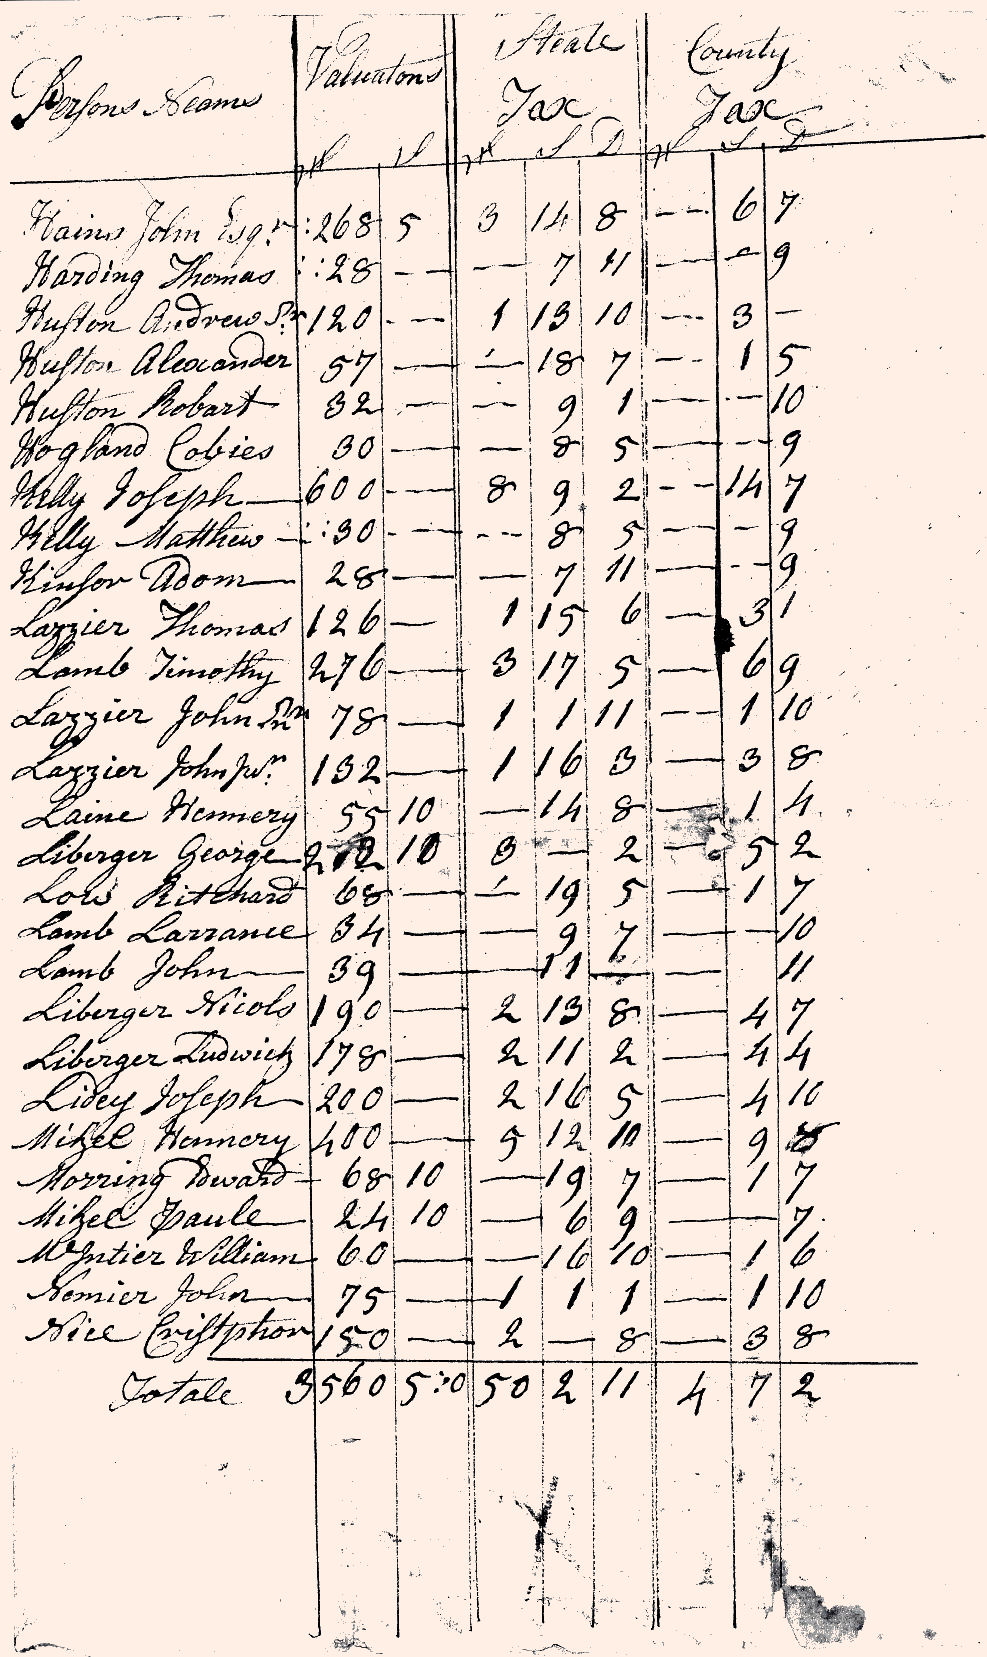 Persons Neams Valuatons Steate Tax County Tax
£ S £ S D £ S D
Hains John Esqr. :268 5 3 14 8 -- -- 6 7
Harding Thomas ::28 -- -- 7 11 — - 9
Huston Andrew Sr 120 - -- 1 13 10 --- 3 -
Huston Alexander 57 — - 18 7 -- 1 5
Huston Robart 32 -- - 9 1 — -- 10
Hogland Cobies 30 — - 8 5 — -- 9
Kelly Joseph — 600 --- 8 9 2 -- 14 7
Kelly Matthew - ::30 -- --- 8 5 — - 9
Kinsor Adom — 28 — - 7 11 — -- 9
Lazzier Thomas 126 — 1 15 6 — 3 1
Lamb Timothy 276 — 3 17 5 — 6 9
Lazzier John Snr 78 — 1 1 11 -- 1 10
Lazzier John Jur. 132 — 1 16 3 — 3 8
Laine Hennery 55 10 — 14 8 — 1 4
Liberger George 212 10 3 — 2 — 5 2
Lows Ritchard 68 — - 19 5 — 1 7
Lamb Larrance 34 — — 9 7 — — 10
Lamb John — 39 — — 11 — — 11
Liberger Nicols 190 — 2 13 8 — 4 7
Liberger Ludwick 178 — 2 11 2 — 4 4
Lidey Joseph — 200 — 2 16 5 — 4 10
Mikel Hennery 400 — 5 12 10 — 9 8
Morring Edward - 68 10 — 19 7 — 1 7
Mikel Paule — 24 10 — 6 9 — — 7.
McIntier William 60 — — 16 10 — 1 6
Nemier John — 75 — 1 1 1 — 1 10
Nice Cristphor 150 — 2 — 8 — 3 8
Totale 3560 5:0 50 2 11 4 7 2